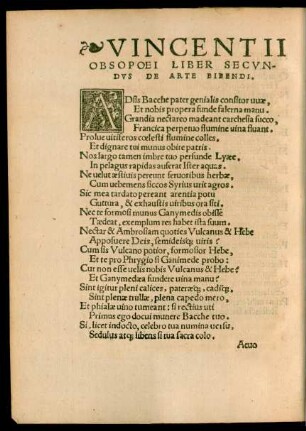 VINCENTII
OBSOPOEI LIBER SECVN-
DVS DE ARTE BIBENDI.
ADSis Bacche pater genialis consitor uuæ,
Et nobis propera funde falerna manu.
Grandia nectareo madeant carchesia succo,
Francica perpetuo flumine uina fluant.
Prolue uitiferos cœlesti flumine colles,
Et dignare tui munus obire patris.
Nos largo tamen imbre tuo perfunde Lyæe,
In pelagus rapidas auferat Ister aquas.
Ne uelut æstiuis pereunt feruoribus herbæ,
Cum uehemens siccos Syrius urit agros.
Sic mea tardato pereant arentia potu
Guttura, & exhaustis uiribus ora siti.
Nec te formosi munus Ganymedis obisse
Tædeat, exemplum res habet ista suum.
Nectar & Ambrosiam quoties Vulcanus & Hebe
Apposuere Deis, semideisq; uiris?
Cum sis Vulcano potior, formosior Hebe,
Et te pro Phrygio si Ganimede probo:
Cur non esse uelis nobis Vulcanus & Hebe?
Et Ganymedæa fundere uina manu?
Sint igitur pleni calices, pateræq;, cadiq;,
Sint plenæ trullæ, plena capedo mero,
Et phialæ uino tumeant: si rectius uti
Primus ego docui munere Bacche tuo.
Si, licet indocto, celebro tua numina uersu,
Sedulus atq; libens si tua sacra colo.